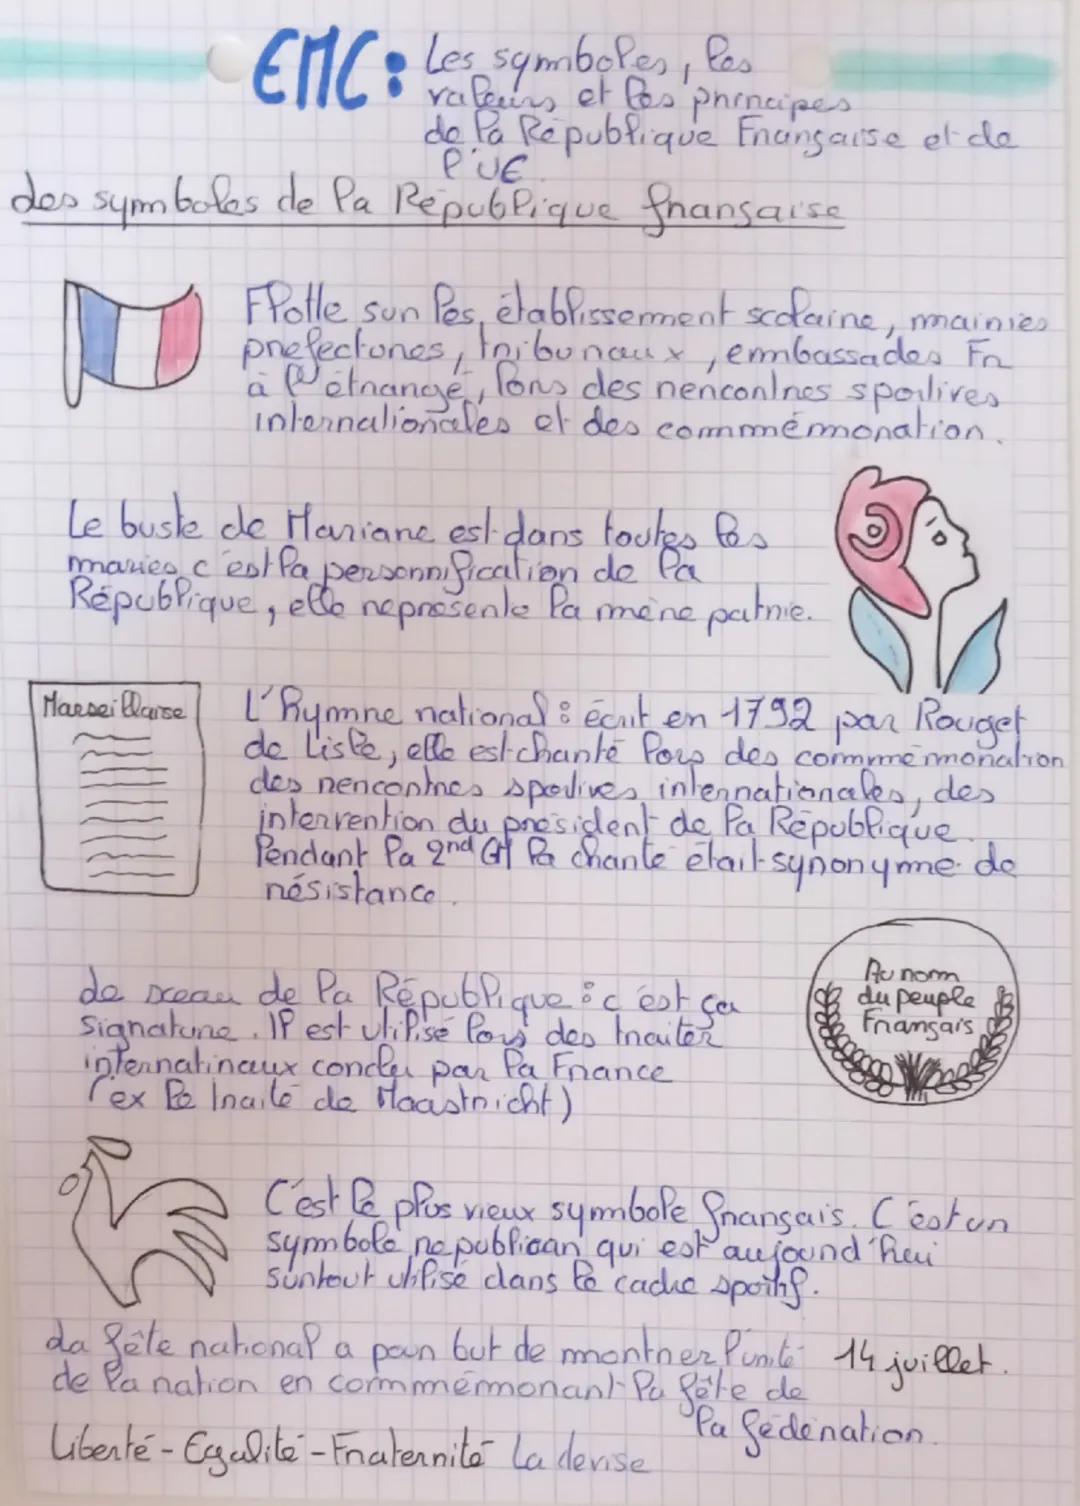 EMC : Les symboles, les
valeurs et les principes
de la République Française et de
l'UE.
Les symboles de la République française
Flotte sur les établissement scolaire, mairies
prefectures, tribunaux, embassades Fr
à l'étrangé, lors des rencontres sportives
internationales et des commémoration.
Le buste de Mariane est dans toutes les
maries c'est la personnification de la
République, elle represente la mère patrie.
Marseillaise
L'hymne national : écrit en 1792 par Rouget
de Lisle, elle est chanté lors des commémoration
des rencontres sportives internationales, des
intervention du président de la République.
Pendant la 2nd GM la chanté était synonyme de
résistance.
Le sceau de la République : c'est ça
signature. Il est utilisé lors des traiter
internatinaux conclu par la France
(ex le traité de Maastricht)
Au nom
du peuple
Français
C'est le plus vieux symbole français. C'est un
symbole republicain qui est aujourd'hui
surtout utilisé dans le cadre sportif.
La fête national a pour but de montrer l'unité 14 juillet.
de la nation en commémorant la fête de
la fédération.
Liberté - Egalité - Fraternité La devise